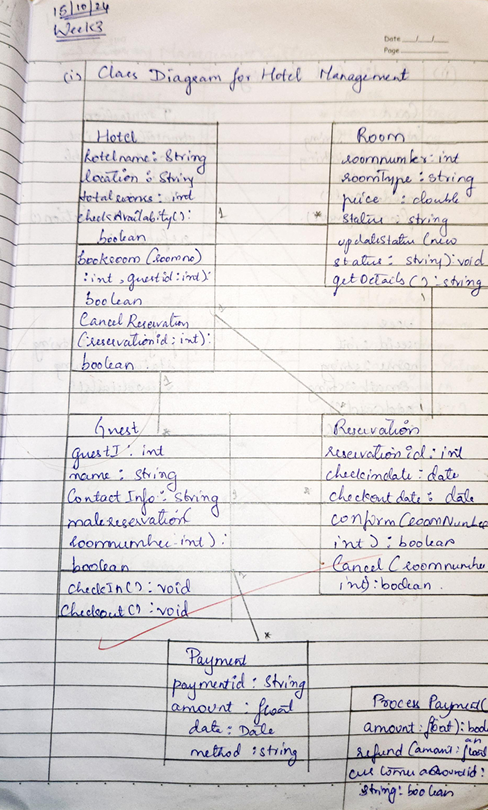 15/10/24
Week3
Date / /
Page
(i) Class Diagram for Hotel Management
Hotel
hotelname: String
location: String
totalrooms: int
checkAvailability():
boolean
bookroom (roomno)
: int, guestid: int):
boolean
Cancel Reservation
(reservationid: int):
boolean
1
*
Room
roomnumber: int
roomType: string
price : double
Status : string
updateStatus (new
status: string): void
getDetails(): string
1
1
1
*
Guest
guestI : int
name: string
Contact Info: String
makereservation
roomnumber: int):
boolean
checkIn(): void
Checkout(): void
Reservation
reservationid: int
checkindate: date
checkoutdate: date
confirm(roomNumber
int): boolean
Cancel (roomnumber
int): boolean
*
Payment
paymentid: String
amount: float
date: Date
method: string
Process Payment(
amount: float): bool
refund (amount: float
string: boolean